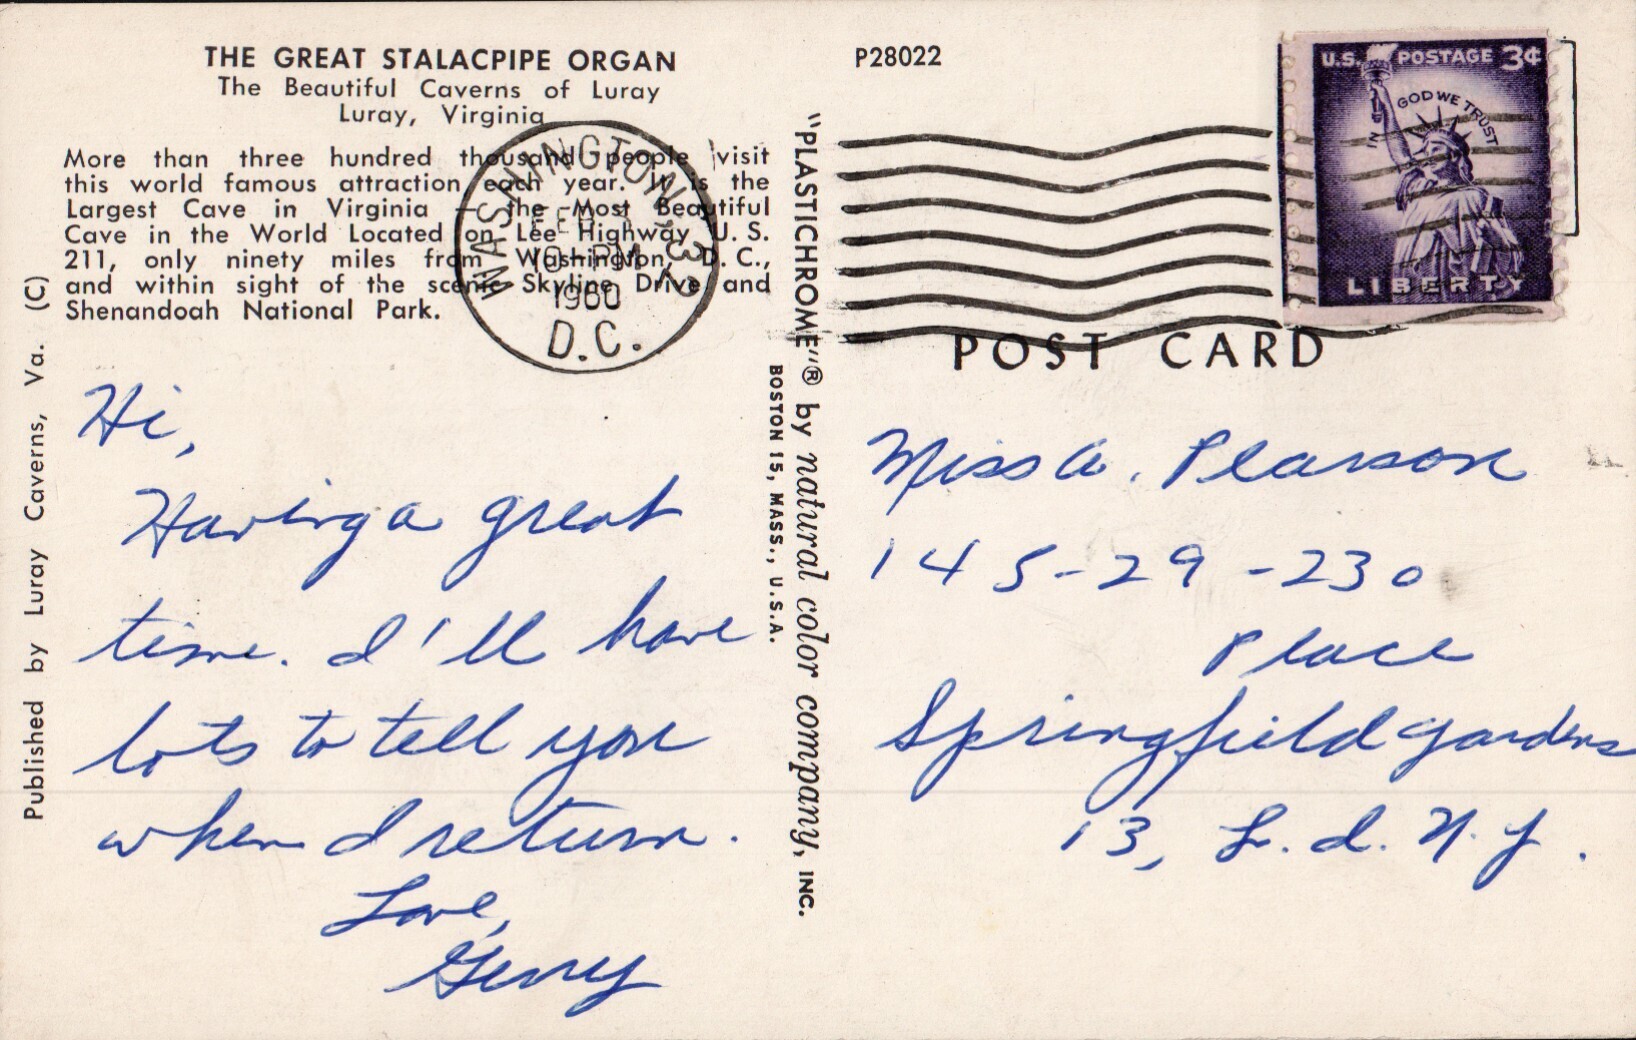 THE GREAT STALACPIPE ORGAN
The Beautiful Caverns of Luray
Luray, Virginia
More than three hundred thousand people visit
this world famous attraction each year. It is the
Largest Cave in Virginia — the Most Beautiful
Cave in the World Located on Lee Highway U. S.
211, only ninety miles from Washington, D. C.,
and within sight of the scenic Skyline Drive and
Shenandoah National Park.
WASHINGTON, 32
FEB
PM
1960
D.C.
Published by Luray Caverns, Va. (C)
Hi,
Having a great
time. I'll have
lots to tell you
when I return.
Love,
Gerry
"PLASTICHROME"® by natural color company, INC.
BOSTON 15, MASS., U.S.A.
P28022
U.S. POSTAGE 3¢
IN GOD WE TRUST
LIBERTY
POST CARD
Miss A. Pearson
145-29-230
Place
Springfield Gardens
13, L. I. N. Y.